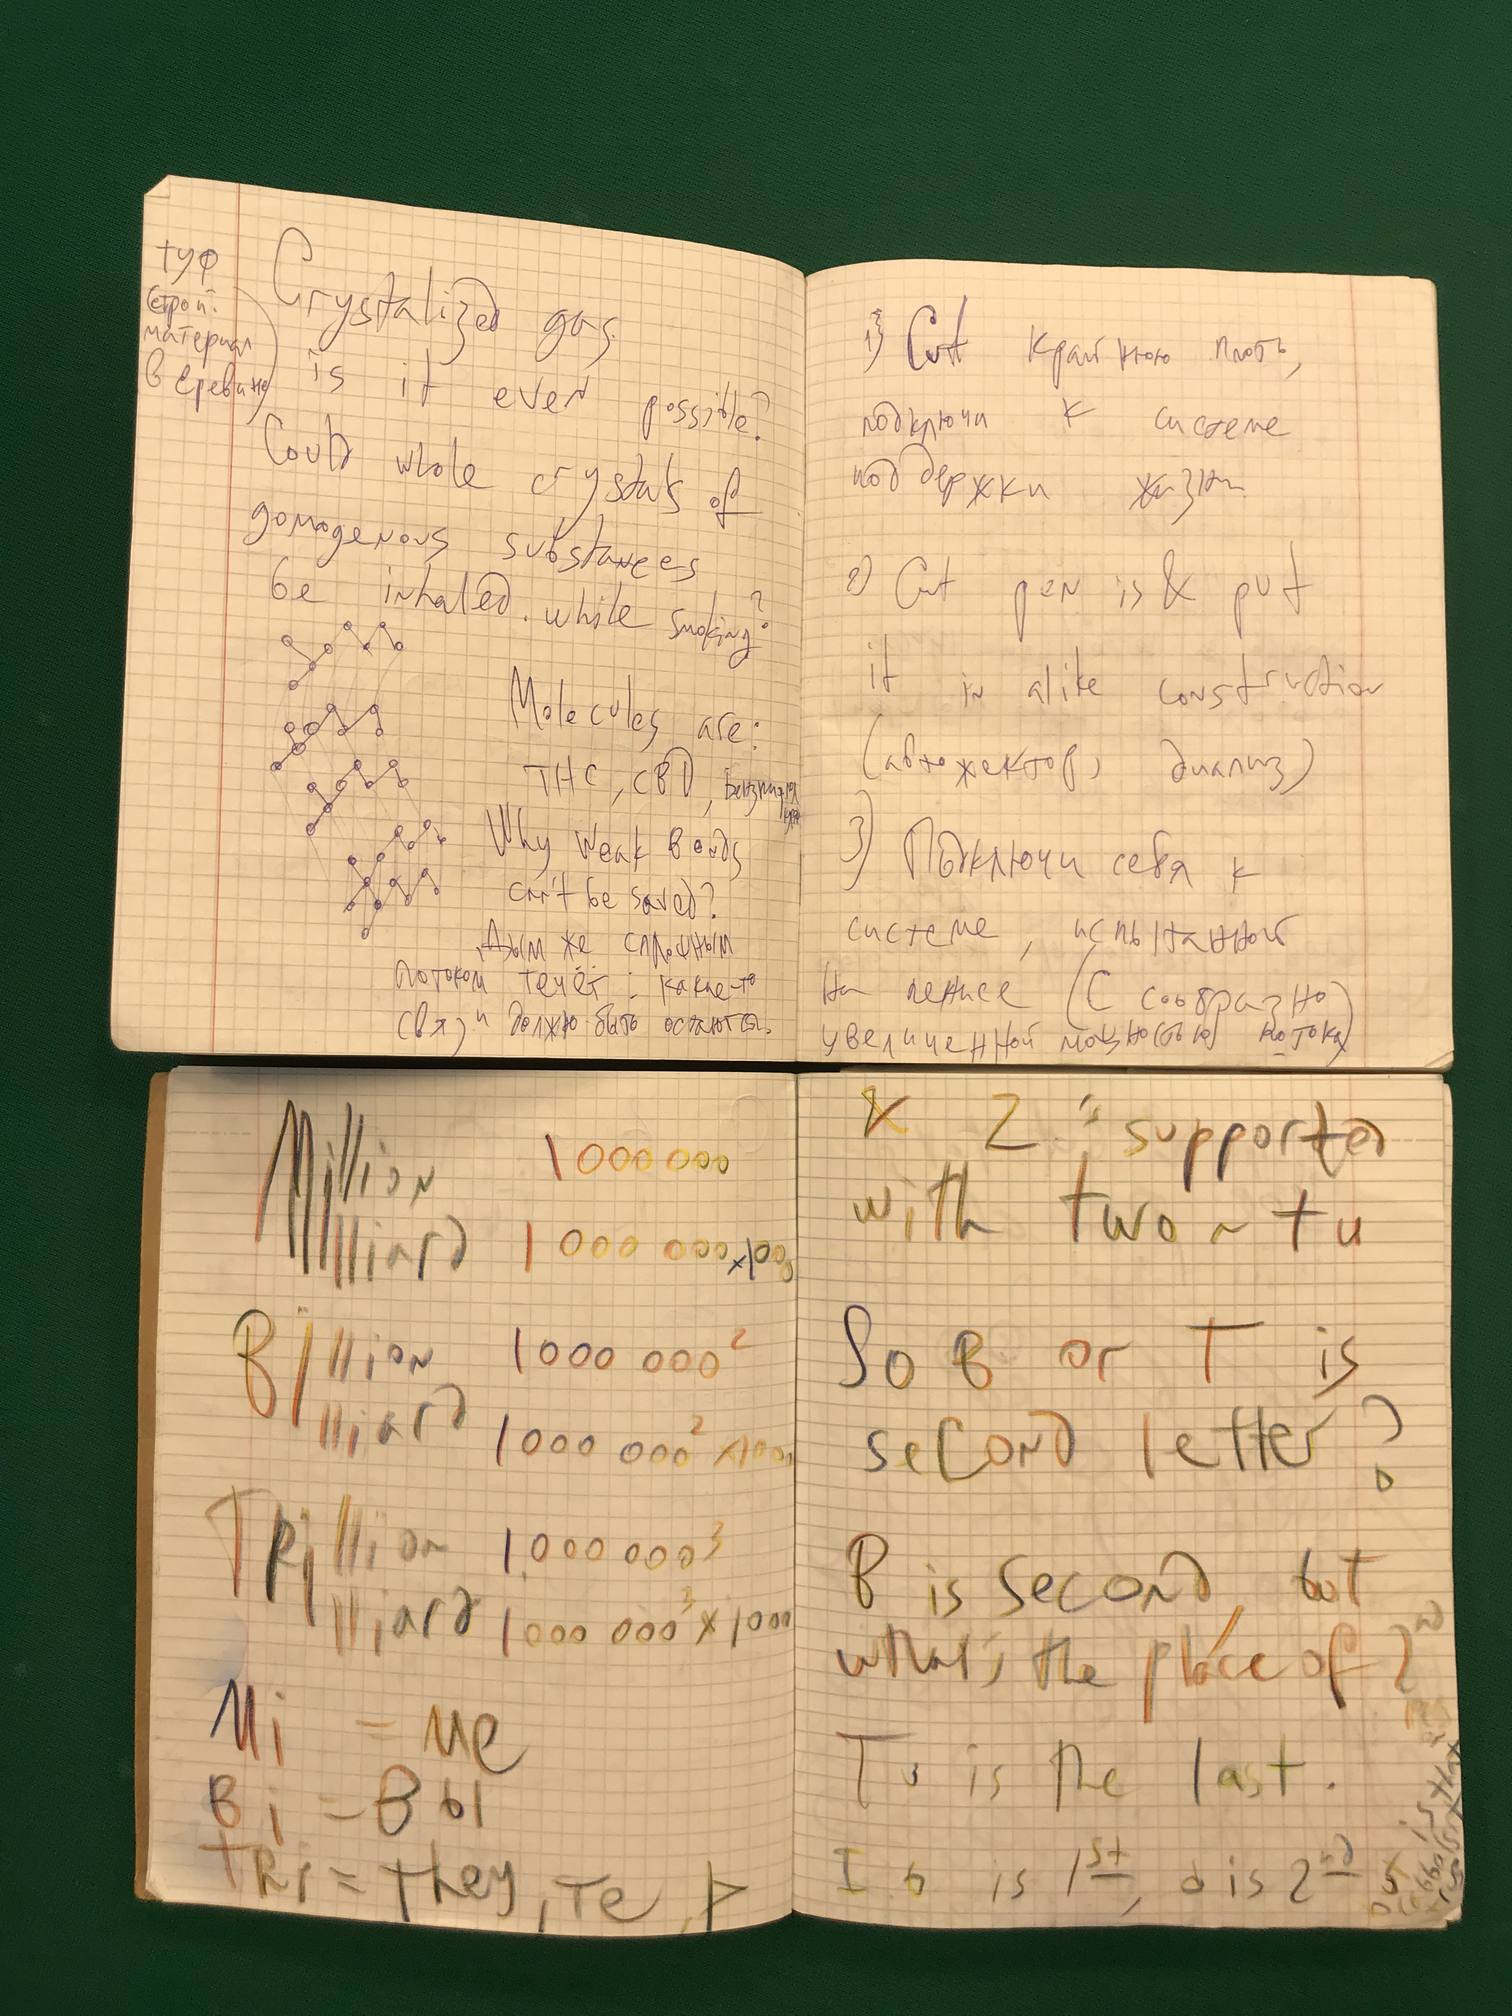 туф
строй.
материал
в Ереване
Crystalized gas.
is it ever possible?
Could whole crystals of
gomogenous substances
be inhaled. while smoking?
Molecules are:
THC, CBD,
Why weak bonds
can't be saved?
Дым же сплошным
потоком течёт: какие-то
связи должно быть остаются.
1) Cut крайнюю плоть,
подключи к системе
поддержки жизни.
2) Cut penis & put
it in alike construction
(автожектор, диализ)
3) Подключи себя к
системе, испытанной
на пенисе (С сообразно
увеличенной мощностью потока)
Million 1000000
lliard 1 000 000 x1000
Billion 1000 000²
lliard 1000 000² x1000
TRillion 1000 000³
lliard 1000 000³ x 1000
Mi = ме
Bi = Вы
TRi = they, те,
2 supporter
with two ~ tu
So B or T is
second letter?
B is second, but
what's the place of 2nd
Tu is the last.
I б is 1st, d is 2nd